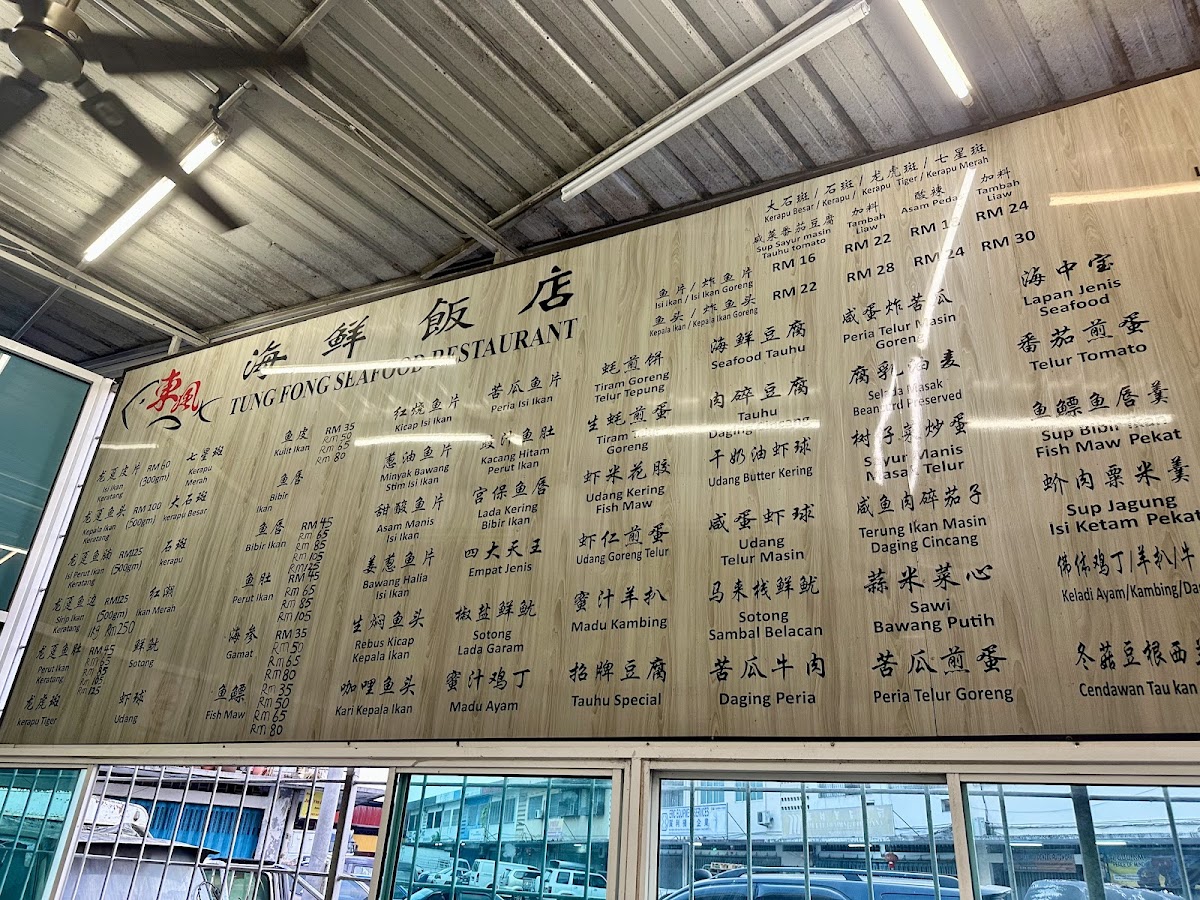 東風
海鮮飯店
TUNG FONG SEAFOOD RESTAURANT
大石斑/石斑/龙虎斑/七星斑
Kerapu Besar / Kerapu / Kerapu Tiger / Kerapu Merah
咸菜番茄豆腐
Sup Sayur masin
Tauhu tomato
加料
Tambah
Liaw
酸辣
Asam Pedas
加料
Tambah
Liaw
鱼片/炸鱼片
Isi Ikan / Isi Ikan Goreng
RM 16
RM 22
RM 24
鱼头/炸鱼头
Kepala Ikan / Kepala Ikan Goreng
RM 22
RM 28
RM 24
RM 30
龙趸皮片
Isi Ikan
Keratang
RM 60
(300gm)
龙趸鱼头
Kepala Ikan
Keratang
RM 100
(500gm)
Isi Perut Ikan
Keratang
RM125
(500gm)
龙趸鱼边
Sirip Ikan
Keratang
RM125
(500gm)
1KG RM 250
龙趸鱼肚
Perut Ikan
Keratang
RM 45
RM 65
RM 85
RM 105
RM 125
龙虎斑
kerapu Tiger
七星斑
Kerapu
Merah
大石斑
kerapu Besar
石斑
kerapu
红潮
Ikan Merah
鲜鱿
Sotong
虾球
Udang
鱼皮
Kulit Ikan
RM 35
RM 50
RM 65
RM 80
鱼唇
Bibir
Ikan
鱼唇
Bibir Ikan
RM 45
RM 65
RM 85
RM 105
RM 125
鱼肚
Perut Ikan
RM 45
RM 65
RM 85
RM 105
海参
Gamat
RM 35
RM 50
RM 65
RM 80
鱼鳔
Fish Maw
RM 35
RM 50
RM 65
RM 80
红烧鱼片
Kicap Isi Ikan
葱油鱼片
Minyak Bawang
Stim Isi Ikan
甜酸鱼片
Asam Manis
Isi Ikan
姜葱鱼片
Bawang Halia
Isi Ikan
生焖鱼头
Rebus Kicap
Kepala Ikan
咖哩鱼头
Kari Kepala Ikan
苦瓜鱼片
Peria Isi Ikan
豉汁鱼肚
Kacang Hitam
Perut Ikan
宫保鱼唇
Lada Kering
Bibir Ikan
四大天王
Empat Jenis
椒盐鲜鱿
Sotong
Lada Garam
蜜汁鸡丁
Madu Ayam
蚝煎饼
Tiram Goreng
Telur Tepung
生蚝煎蛋
Tiram
Goreng
虾米花胶
Udang Kering
Fish Maw
虾仁煎蛋
Udang Goreng Telur
蜜汁羊扒
Madu Kambing
招牌豆腐
Tauhu Special
海鲜豆腐
Seafood Tauhu
肉碎豆腐
Tauhu
Daging
干奶油虾球
Udang Butter Kering
咸蛋虾球
Udang
Telur Masin
马来栈鲜鱿
Sotong
Sambal Belacan
苦瓜牛肉
Daging Peria
咸蛋炸苦瓜
Peria Telur Masin
Goreng
腐乳油麦
Selada Masak
Beancurd Preserved
树子菜炒蛋
Sayur Manis
Masak Telur
咸鱼肉碎茄子
Terung Ikan Masin
Daging Cincang
蒜米菜心
Sawi
Bawang Putih
苦瓜煎蛋
Peria Telur Goreng
海中宝
Lapan Jenis
Seafood
番茄煎蛋
Telur Tomato
鱼鳔鱼唇羹
Sup Bibir Ikan
Fish Maw Pekat
蚧肉粟米羹
Sup Jagung
Isi Ketam Pekat
鸡丁/羊扒/牛
Keladi Ayam/Kambing/Da
冬菇豆根西
Cendawan Tau kan